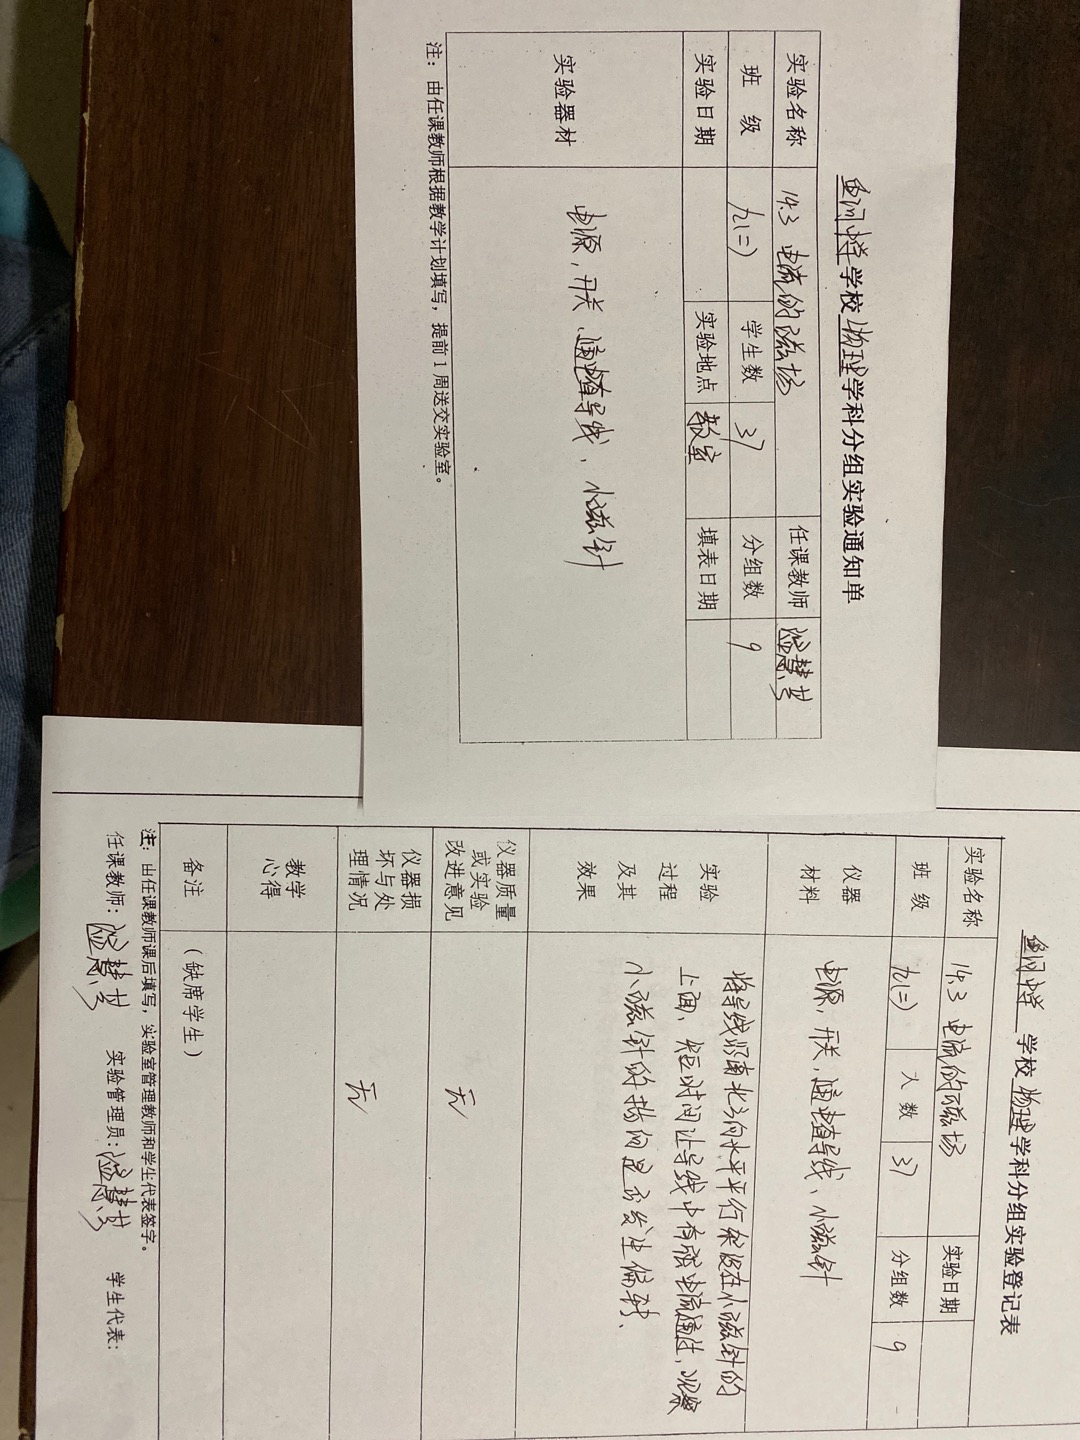 学校物理学科分组实验通知单
实验名称 14.3 电流的磁场 任课教师
班级 九(二) 学生数 37 分组数 9
实验日期 实验地点 教室 填表日期
实验器材 电源，开关、通电直导线、小磁针
注：由任课教师根据教学计划填写，提前1周送交实验室。
学校物理学科分组实验登记表
实验名称 14.3 电流的磁场 实验日期
班级 九(二) 人数 37 分组数 9
仪器材料 电源，开关，通电直导线、小磁针
实验过程及其效果 将导线沿南北方向水平平行架设在小磁针的
上面、短时间让导线中有强电流通过，观察
小磁针的指向是否发生偏转、
仪器质量或实验改进意见 无
仪器损坏与处理情况 无
教学心得
备注 (缺席学生)
注：由任课教师课后填写，实验室管理教师和学生代表签字。
任课教师： 实验管理员： 学生代表：